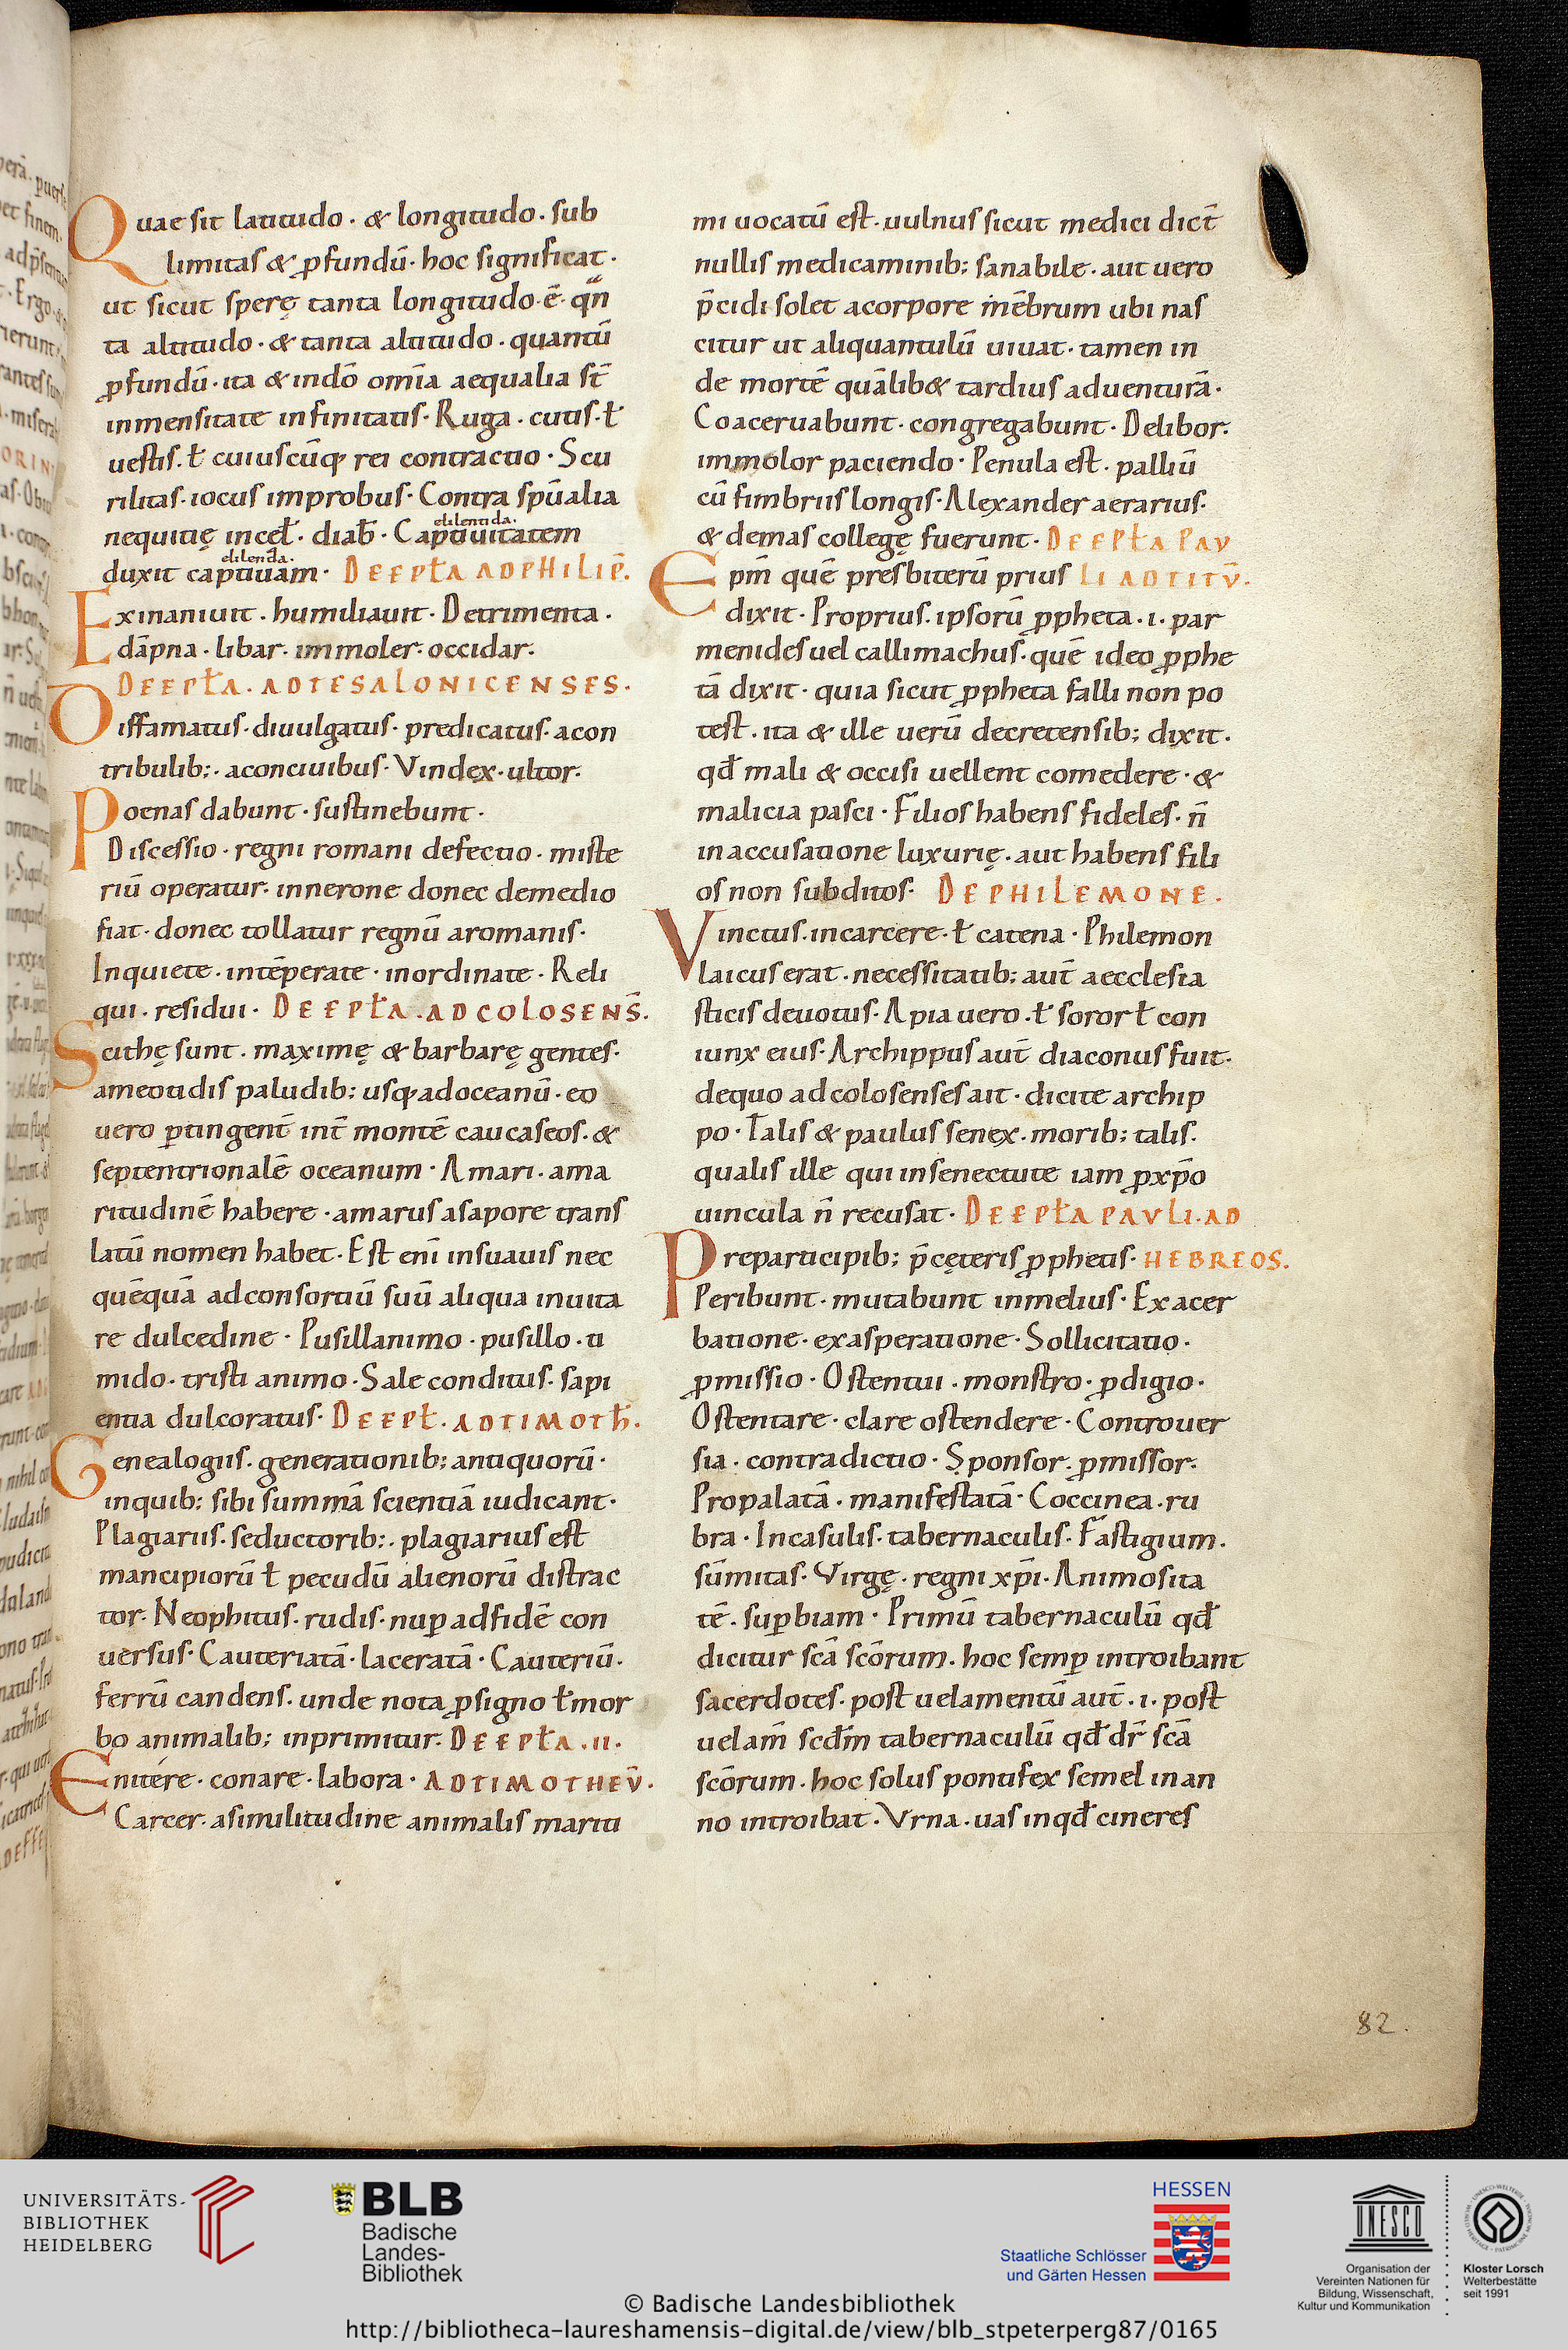 Quae sit latitudo · & longitudo · sub
limitas & ꝓfundū · hoc significat ·
ut sicut sperę tanta longitudo · ē · qn̄
ta altitudo · & tanta altitudo · quantū
ꝓfundū · ita & indō om̄ia aequalia st̄
inmensitate infinitatis · Ruga · cutis · ł
uestis · ł cuiuscūq; rei contractio · Scu
rilitas · iocus improbus · Contra spūalia
nequitię in cel̄ · diab̄ · Captiuitatem
duxit captiuam · DE EPŁA AD PHILIP̄ ·
Exinaniuit · humiliauit · Detrimenta ·
dāpna · libar · immoler · occidar ·
DE EPŁA · AD TESALONICENSES ·
Diffamatus · diuulgatus · predicatus · acon
tribulib; · aconciuibus · Vindex · ultor ·
Poenas dabunt · sustinebunt ·
Discessio · regni romani defectio · miste
riū operatur · innerone donec demedio
fiat · donec tollatur regnū aromanis ·
Inquiete · intēperate · inordinate · Reli
qui · residui · DE EPŁA · AD COLOSENS̄ ·
Scithę sunt · maximę & barbarę gentes ·
ameotidis paludib; usq; adoceanū · eo
uero ꝑtingent̄ int̄ montē caucaseos · &
septentrionalē oceanum · Amari · ama
ritudinē habere · amarus asapore trans
latū nomen habet · Est enī insuauis nec
quēquā adconsortiū suū aliqua inuita
re dulcedine · Pusillanimo · pusillo · ti
mido · tristi animo · Sale conditus · sapi
entia dulcoratus · DE EPŁ · AD TIMOTH̄ ·
Genealogiis · generationib; antiquorū ·
inquib; sibi summā scientiā iudicant ·
Plagiariis · seductorib; · plagiarius est
mancipiorū ł pecudū alienorū distrac
tor · Neophitus · rudis · nuꝑ adfidē con
uersus · Cauteriatā · laceratā · Cauteriū ·
ferrū candens · unde nota ꝓsigno ł mor
bo animalib; inprimitur · DE EPŁA · II ·
Enitere · conare · labora · AD TIMOTHEV̄ ·
Carcer · asimilitudine animalis marti
mi uocatū est · uulnus sicut medici dict̄
nullis medicaminib; sanabile · aut uero
p̄cidi solet acorpore mēbrum ubi nas
citur ut aliquantulū uiuat · tamen in
de mortē quālib& tardius aduenturā ·
Coaceruabunt · congregabunt · Delibor ·
immolor paciendo · Penula est · palliū
cū fimbriis longis · Alexander aerarius ·
& demas collegę fuerunt · DE EPŁA PAV
Epm̄ quē presbiterū prius LI AD TITV̄ ·
dixit · Proprius · ipsorū ꝓpheta · i · par
menides uel callimachus · quē ideo ꝓphe
tā dixit · quia sicut ꝓpheta falli non po
test · ita & ille uerū decretensib; dixit ·
qđ mali & occisi uellent comedere · &
malicia pasci · Filios habens fideles · n̄
in accusatione luxurię · aut habens fili
os non subditos · DE PHILEMONE ·
Vinctus · incarcere · ł catena · Philemon
laicus erat · necessitatib; aut̄ aecclesia
sticis deuotus · Apia uero · ł soror ł con
iunx eius · Archippus aut̄ diaconus fuit ·
dequo ad colosenses ait · dicite archip
po · Talis & paulus senex · morib; talis ·
qualis ille qui insenectute iam ꝓ xp̄o
uincula n̄ recusat · DE EPŁA PAVLI · AD
Preparticipib; p̄cęteris ꝓphetis · HEBREOS ·
Peribunt · mutabunt inmelius · Exacer
batione · exasperatione · Sollicitatio ·
ꝓmissio · Ostentui · monstro · ꝓdigio ·
Ostentare · clare ostendere · Controuer
sia · contradictio · Sponsor · ꝓmissor ·
Propalatā · manifestatā · Coccinea · ru
bra · Incasulis · tabernaculis · Fastigium ·
sūmitas · Virgę · regni xp̄i · Animosita
tē · suꝑbiam · Primū tabernaculū qđ
dicitur scā scōrum · hoc semꝑ introibant
sacerdotes · post uelamentū aut̄ · i · post
uelam̄ scđm tabernaculū qđ dr̄ scā
scōrum · hoc solus pontifex semel in an
no introibat · Vrna · uas inqđ cineres
82 ·
UNIVERSITÄTS-
BIBLIOTHEK
HEIDELBERG
BLB
Badische
Landes-
Bibliothek
HESSEN
Staatliche Schlösser
und Gärten Hessen
UNESCO
Organisation der
Vereinten Nationen für
Bildung, Wissenschaft,
Kultur und Kommunikation
Kloster Lorsch
Welterbestätte
seit 1991
© Badische Landesbibliothek
http://bibliotheca-laureshamensis-digital.de/view/blb_stpeterperg87/0165